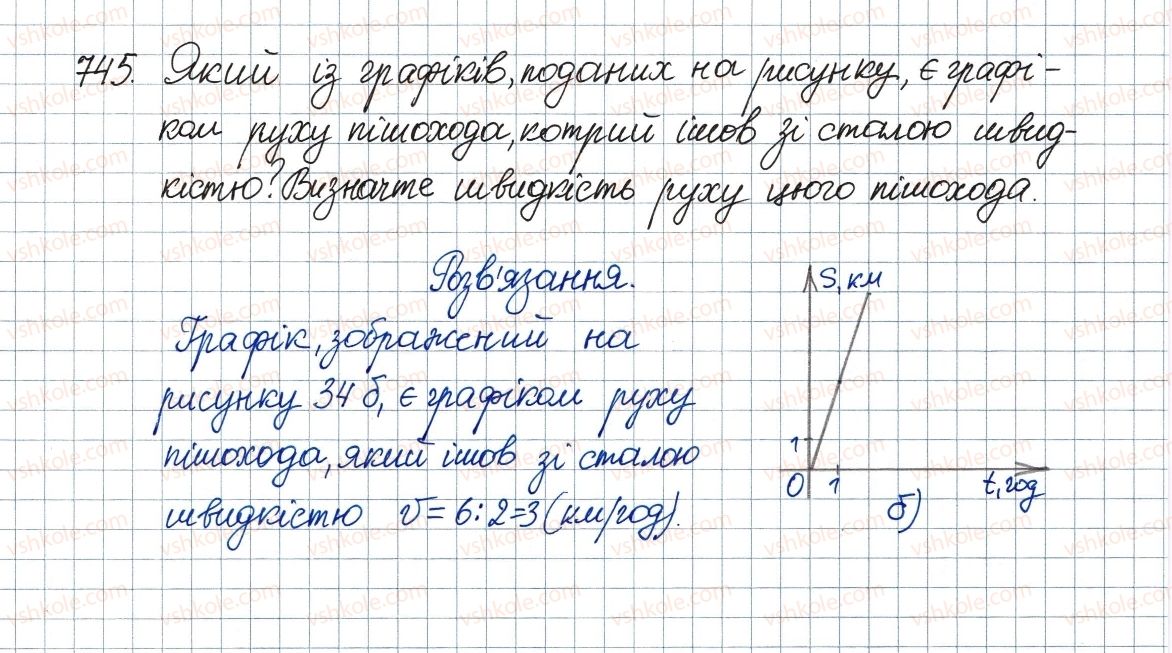 745. Який із графіків, поданих на рисунку, є графі-
ком руху пішохода, котрий ішов зі сталою швид-
кістю? Визначте швидкість руху цього пішохода.
Розв'язання.
Графік, зображений на
рисунку 34 б, є графіком руху
пішохода, який ішов зі сталою
швидкістю v = 6 : 2 = 3 (км/год).
S, км
1
0 1 t, год
б)
vshkole.com